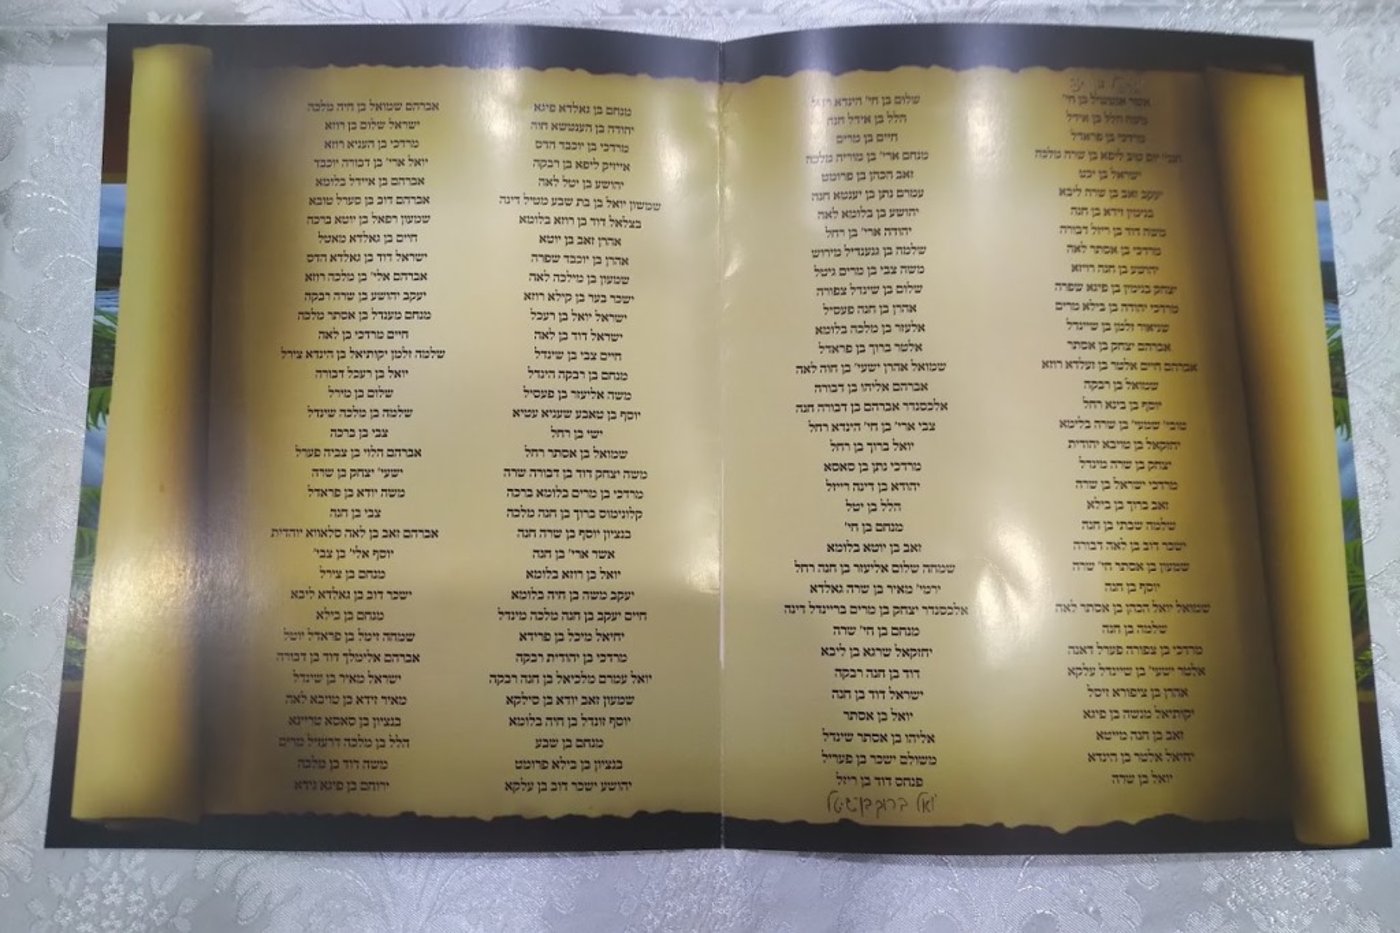 אשר אנשיל בן חי'
משה הלל בן אידל
מרדכי בן פראדל
חנני' יום טוב ליפא בן שרה מלכה
ישראל בן יכט
יעקב זאב בן שרה ליבא
בנימין זידא בן חנה
משה דוד בן רייזל דבורה
מרדכי בן אסתר לאה
יהושע בן חנה רויזא
יצחק בנימין בן פיגא שפרה
מרדכי יהודה בן בילא מרים
שניאור זלמן בן שיינדל
אברהם יצחק בן אסתר
אברהם חיים אלטר בן זעלדא רוזא
שמואל בן רבקה
יוסף בן בינא רחל
טובי' שמעי' בן שרה בלימא
יחזקאל בן טויבא יהודית
יצחק בן שרה מינדל
מרדכי ישראל בן שרה
זאב ברוך בן בילא
שלמה שבתי בן חנה
ישכר דוב בן לאה דבורה
שמעון בן אסתר חי' שרה
יוסף בן חנה
שמואל יואל הכהן בן אסתר לאה
שלמה בן חנה
מרדכי בן צפורה פערל דאנה
אלטר ישעי' בן שיינדל עלקא
אהרן בן ציפורא זיסל
יקותיאל מנשה בן פיגא
זאב בן חנה מייטא
יחיאל אלטר בן הינדא
יואל בן שרה
שלום בן חי' הינדא רחל
הלל בן אידל חנה
חיים בן מרים
מנחם ארי' בן מורית מלכה
זאב הכהן בן פרומט
עמרם נתן בן יענטא חנה
יהושע בן בלומא לאה
יהודה ארי' בן רחל
שלמה בן גנענדיל מירוש
משה צבי בן מרים גיטל
שלום בן שינדל צפורה
אהרן בן חנה פעסיל
אלעזר בן מלכה בלומא
אלטר ברוך בן פראדל
שמואל אהרן ישעי' בן חוה לאה
אברהם אליהו בן דבורה
אלכסנדר אברהם בן דבורה חנה
צבי ארי' בן חי' הינדא רחל
יואל ברוך בן רחל
מרדכי נתן בן סאסא
יהודא בן דינה רייזל
הלל בן יטל
מנחם בן חי'
זאב בן יוטא בלומא
שמחה שלום אליעזר בן חנה רחל
ירמי' מאיר בן שרה גאלדא
אלכסנדר יצחק בן מרים בריינדל דינה
מנחם בן חי' שרה
יחזקאל שרגא בן ליבא
דוד בן חנה רבקה
ישראל דוד בן חנה
יואל בן אסתר
אליהו בן אסתר שינדל
משולם ישכר בן פעריל
פנחס דוד בן רייזל
יואל ברוך בן גיטל
מנחם בן גאלדא פיגא
יהודה בן הענטשא חוה
מרדכי בן יוכבד הדס
אייזיק ליפא בן רבקה
יהושע בן יטל לאה
שמשון יואל בן בת שבע מטיל דינה
בצלאל דוד בן רוזא בלומא
אהרן זאב בן יוטא
אהרן בן יוכבד שפרה
שמעון בן מילכה לאה
ישכר בער בן קילא רוזא
ישראל יואל בן רעכל
ישראל דוד בן לאה
חיים צבי בן שינדל
מנחם בן רבקה הינדל
משה אליעזר בן פעסיל
יוסף בן טאבע שעניא עטיא
ישי בן רחל
שמואל בן אסתר רחל
משה יצחק דוד בן דבורה שרה
מרדכי בן מרים בלומא ברכה
קלונימוס ברוך בן חנה מלכה
בנציון יוסף בן שרה חנה
אשר ארי' בן חנה
יואל בן רוזא בלומא
יעקב משה בן חיה בלומא
חיים יעקב בן חנה מלכה מינדל
יחיאל מיכל בן פרידא
מרדכי בן יהודית רבקה
יואל עמרם מלכיאל בן חנה רבקה
שמעון זאב יודא בן סילקא
יוסף זונדל בן חיה בלומא
מנחם בן שבע
בנציון בן בילא פרומט
יהושע ישכר דוב בן עלקא
אברהם שמואל בן חיה מלכה
ישראל שלום בן רוזא
מרדכי בן העניא רוזא
יואל ארי' בן דבורה יוכבד
אברהם בן איידל בלומא
אברהם דוב בן סערל טובא
שמעון רפאל בן יוטא ברכה
חיים בן גאלדא מאטל
ישראל דוד בן גאלדא הדס
אברהם אלי' בן מלכה רוזא
יעקב יהושע בן שרה רבקה
מנחם מענדל בן אסתר מלכה
חיים מרדכי בן לאה
שלמה זלמן יקותיאל בן הינדא צירל
יואל בן רעכל דבורה
שלום בן מירל
שלמה בן מלכה שינדל
צבי בן ברכה
אברהם הלוי בן צביה פערל
ישעי' יצחק בן שרה
משה יודא בן פראדל
צבי בן חנה
אברהם זאב בן לאה סלאווא יוהדית
יוסף אלי' בן צבי'
מנחם בן צירל
ישכר דוב בן גאלדא ליבא
מנחם בן בילא
שמחה זימל בן פראדל יוטל
אברהם אלימלך דוד בן דבורה
ישראל מאיר בן שינדל
מאיר זידא בן טויבא לאה
בנציון בן סאסא טריינא
הלל בן מלכה דרעזיל מרים
משה דוד בן מלכה
ירוחם בן פיגא גידא